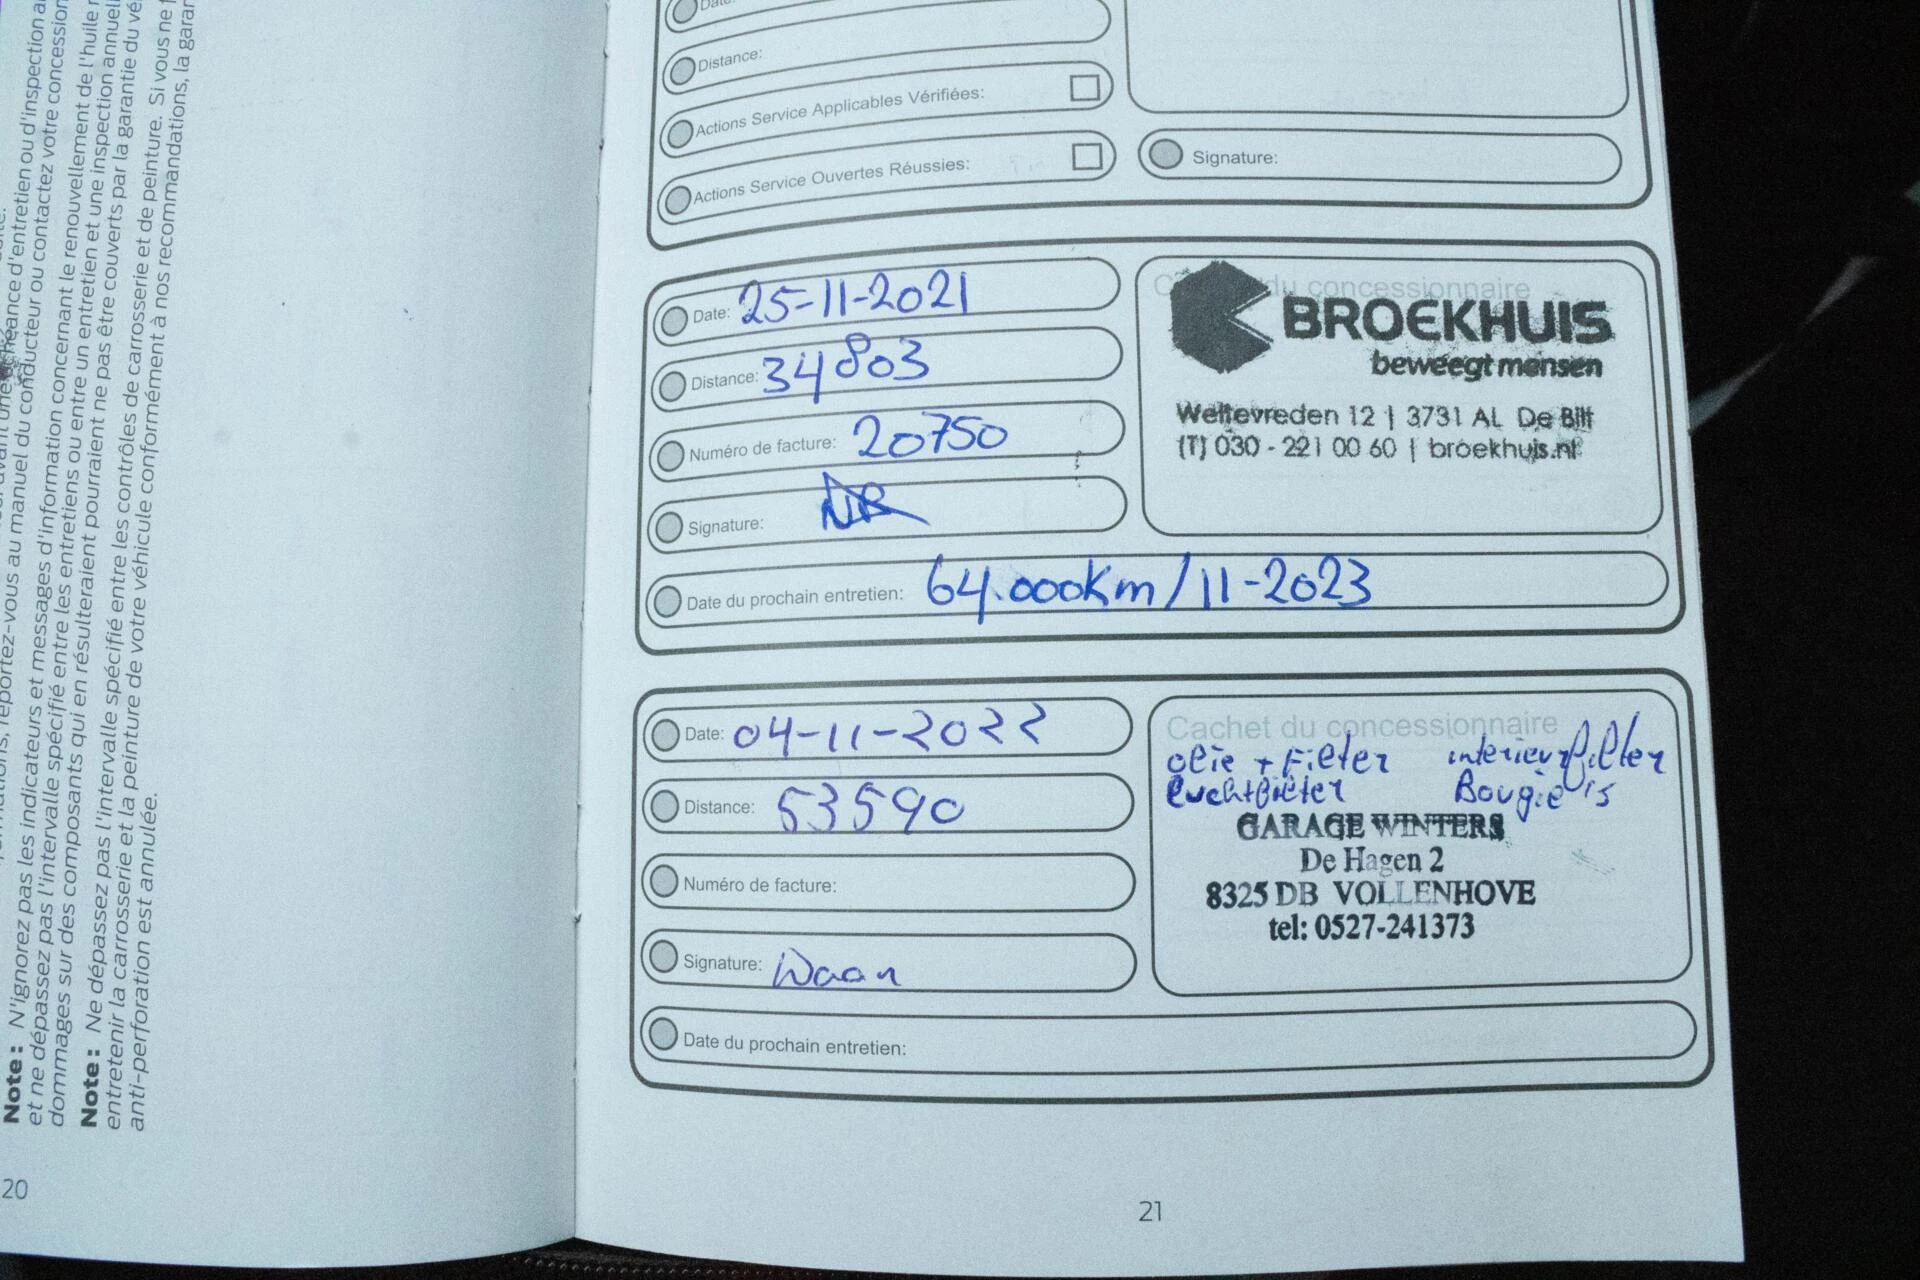 anti-perforation est annulée.
entretenir la carrosserie et la peinture de votre véhicule conformément à nos recommandations, la garan
Note : Ne dépassez pas l'intervalle spécifié entre les contrôles de carrosserie et de peinture. Si vous ne
dommages sur des composants qui en résulteraient pourraient ne pas être couverts par la garantie du vé
et ne dépassez pas l'intervalle spécifié entre les entretiens ou entre un entretien et une inspection annuel
Note : N'ignorez pas les indicateurs et messages d'information concernant le renouvellement de l'huile
reportez-vous au manuel du conducteur ou contactez votre concession
avant une échéance d'entretien ou d'inspection
20
Date:
Distance:
Actions Service Applicables Vérifiées:
Actions Service Ouvertes Réussies:
Signature:
Date: 25-11-2021
Distance: 34803
Numéro de facture: 20750
Signature:
Date du prochain entretien: 64.000km/11-2023
Cachet du concessionnaire
BROEKHUIS
beweegt mensen
Weltevreden 12 | 3731 AL De Bilt
(T) 030 - 221 00 60 | broekhuis.nl
Date: 04-11-2022
Distance: 53590
Numéro de facture:
Signature: Daan
Date du prochain entretien:
Cachet du concessionnaire
olie + Filter interieurfilter
luchtfilter Bougie's
GARAGE WINTERS
De Hagen 2
8325 DB VOLLENHOVE
tel: 0527-241373
21